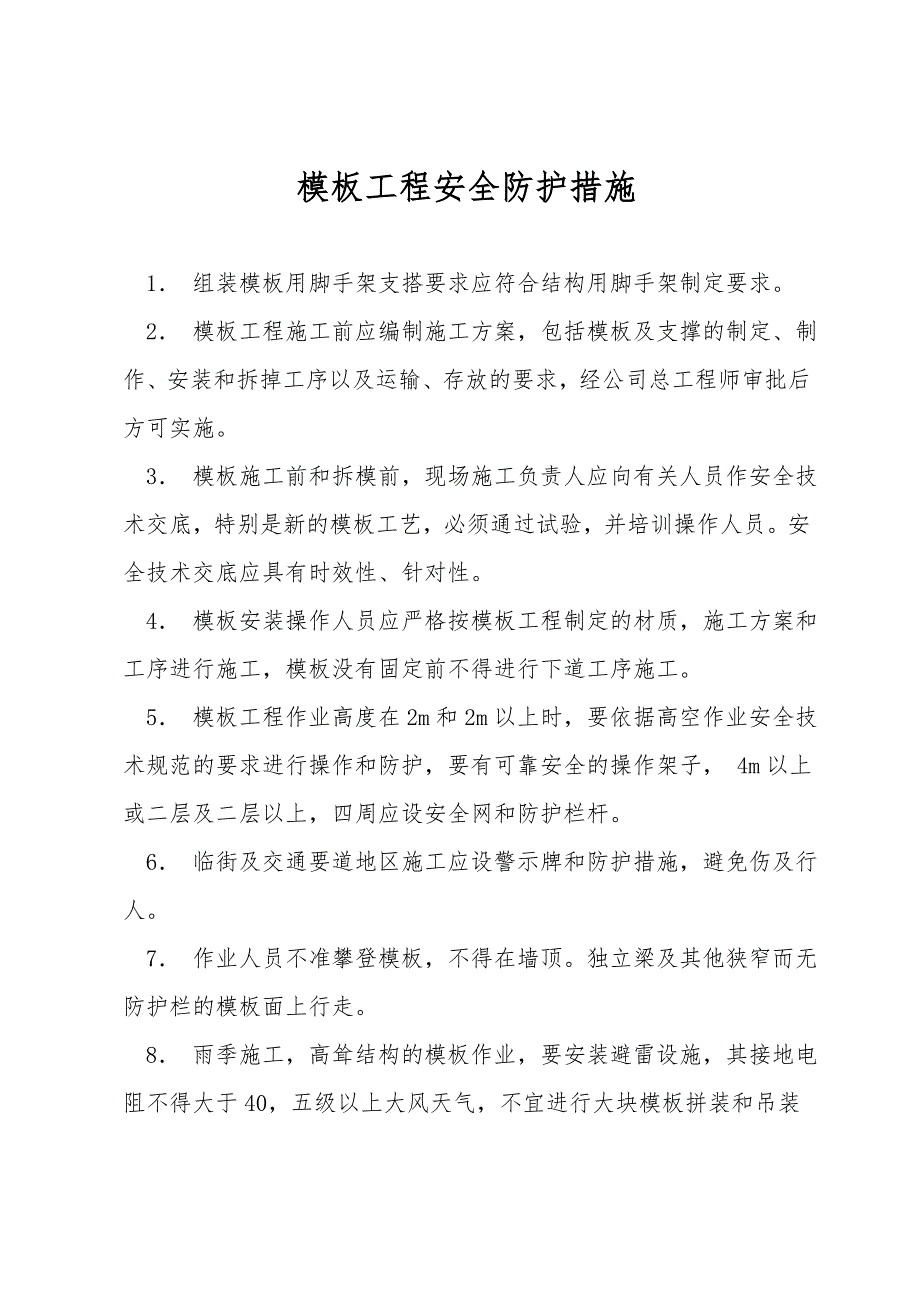 模板工程安全防护措施
1． 组装模板用脚手架支搭要求应符合结构用脚手架制定要求。
2． 模板工程施工前应编制施工方案，包括模板及支撑的制定、制
作、安装和拆掉工序以及运输、存放的要求，经公司总工程师审批后
方可实施。
3． 模板施工前和拆模前，现场施工负责人应向有关人员作安全技
术交底，特别是新的模板工艺，必须通过试验，并培训操作人员。安
全技术交底应具有时效性、针对性。
4． 模板安装操作人员应严格按模板工程制定的材质，施工方案和
工序进行施工，模板没有固定前不得进行下道工序施工。
5． 模板工程作业高度在 2m 和 2m 以上时，要依据高空作业安全技
术规范的要求进行操作和防护，要有可靠安全的操作架子， 4m 以上
或二层及二层以上，四周应设安全网和防护栏杆。
6． 临街及交通要道地区施工应设警示牌和防护措施，避免伤及行
人。
7． 作业人员不准攀登模板，不得在墙顶。独立梁及其他狭窄而无
防护栏的模板面上行走。
8． 雨季施工，高耸结构的模板作业，要安装避雷设施，其接地电
阻不得大于 40，五级以上大风天气，不宜进行大块模板拼装和吊装